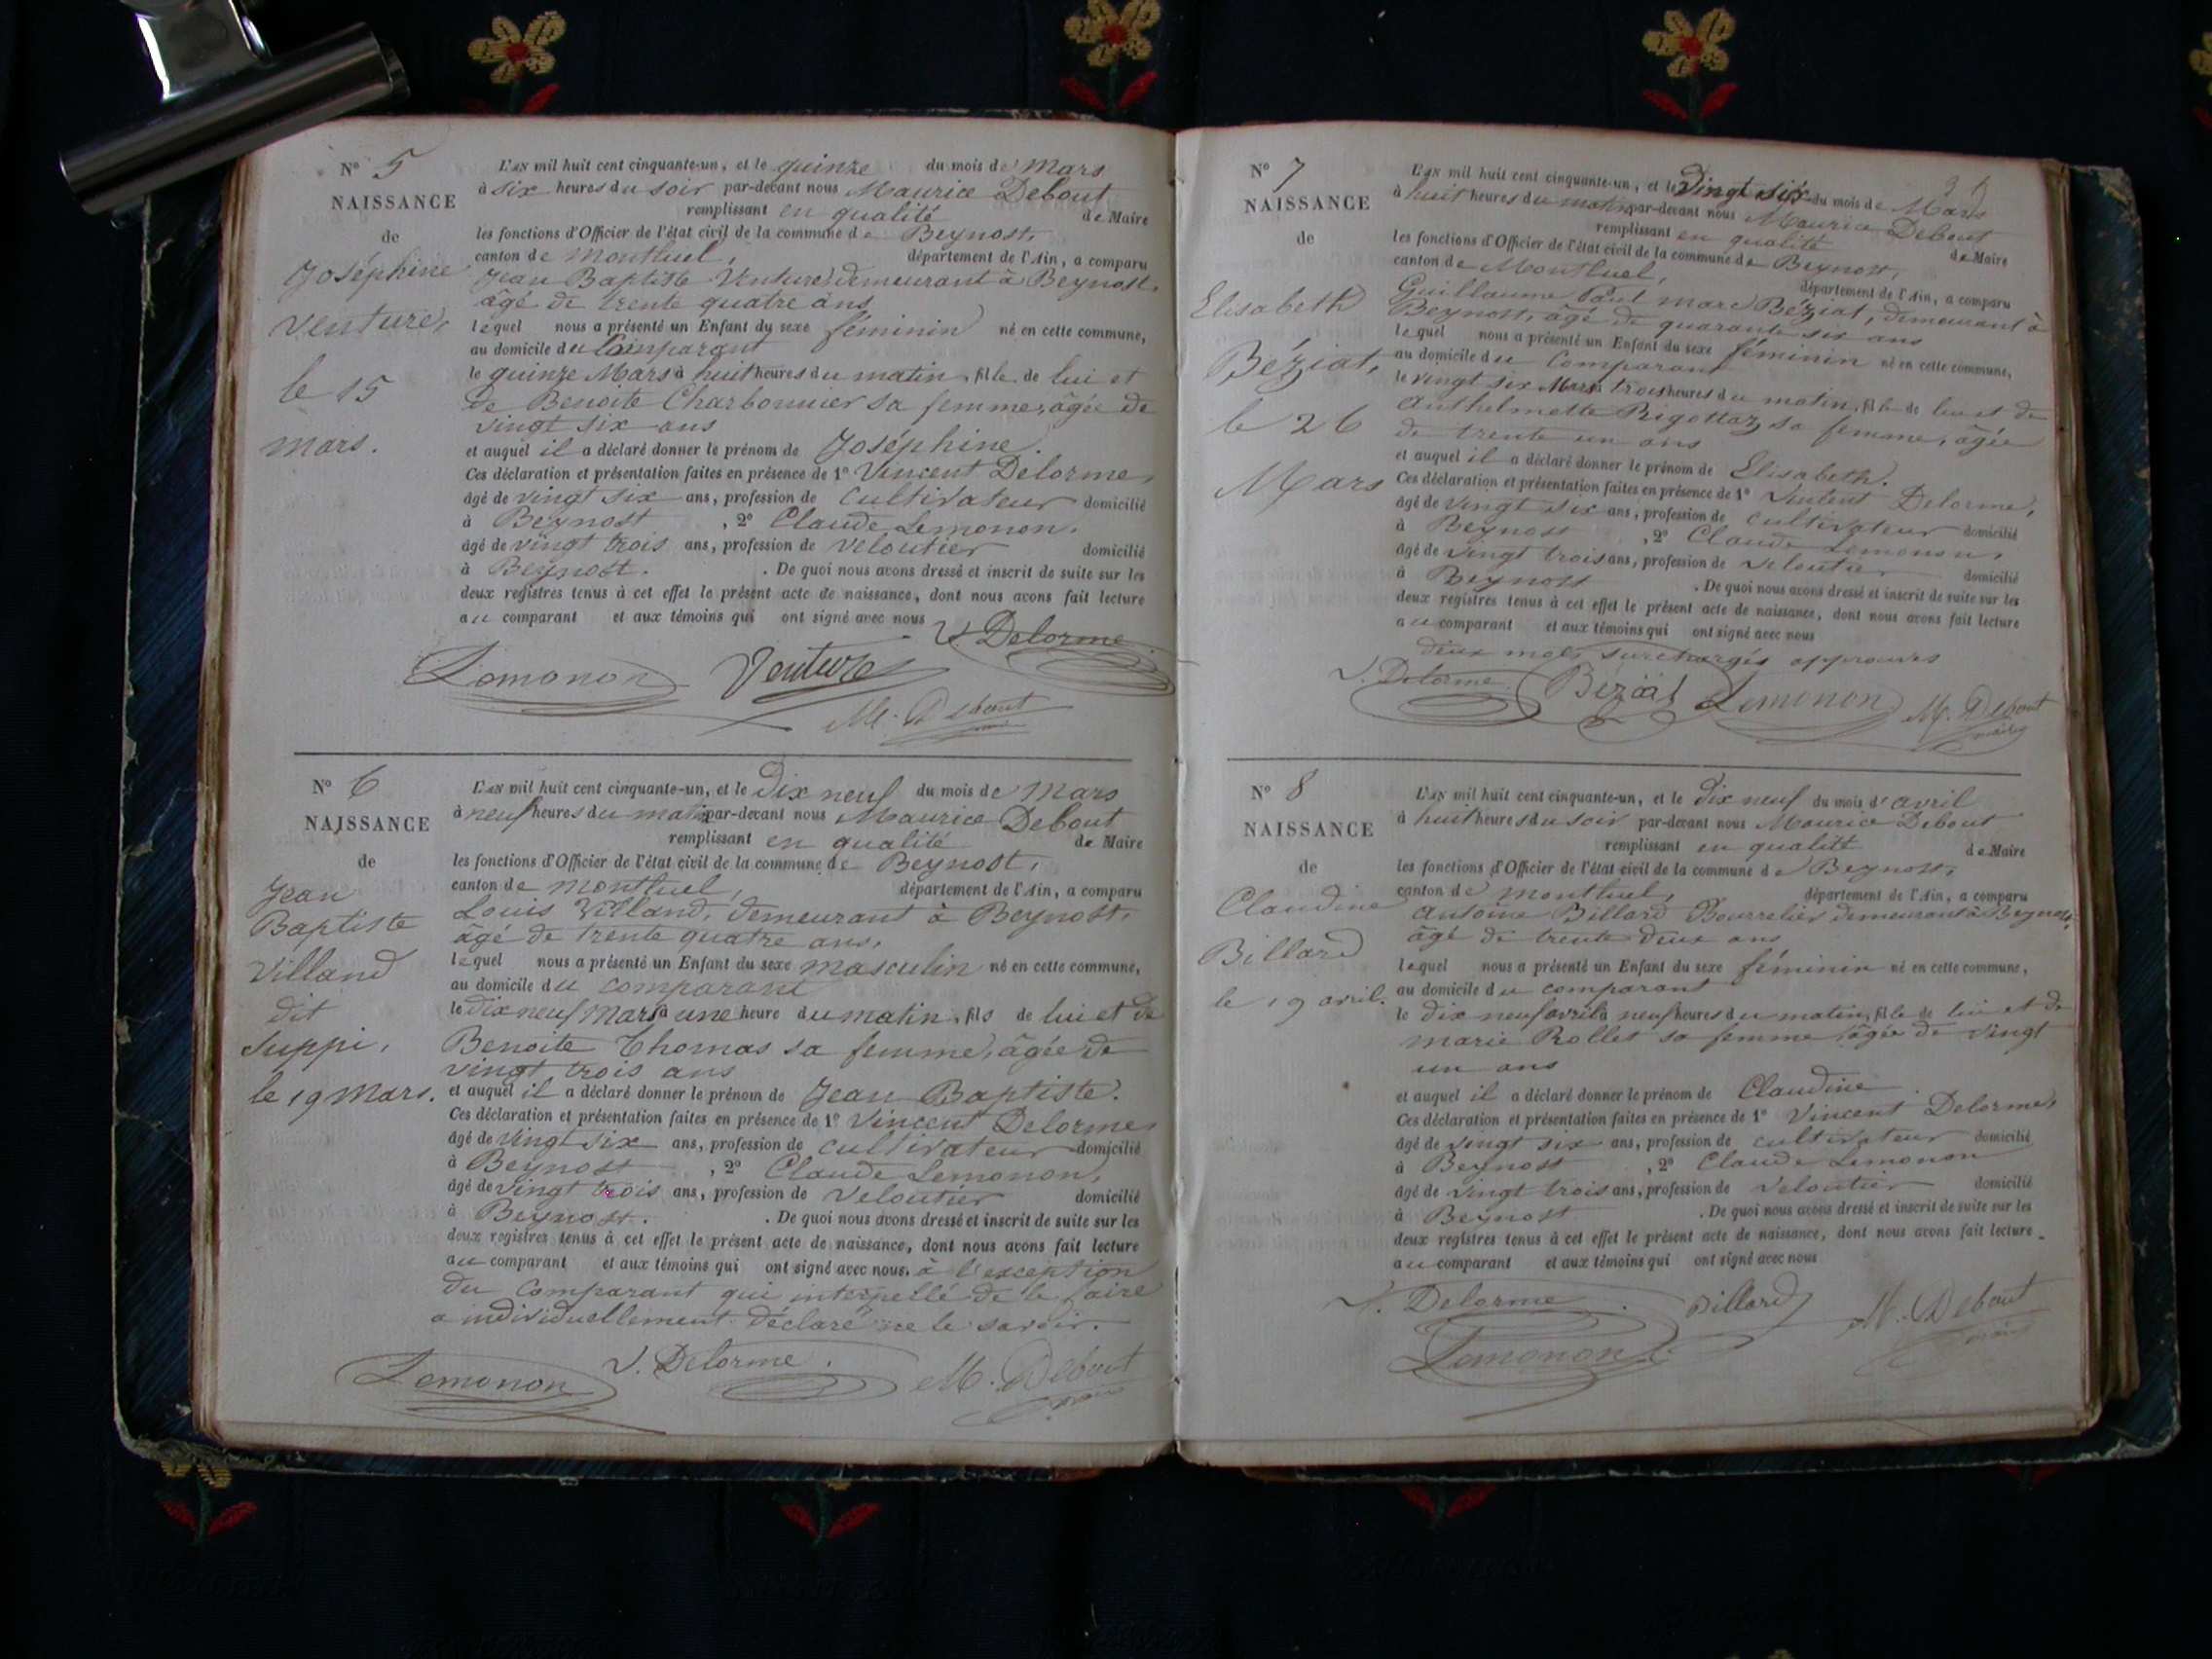 N° 5
NAISSANCE
de
Joséphine
Venture,
le 15
mars.
L'AN mil huit cent cinquante-un, et le quinze du mois de Mars
à six heures du soir par-devant nous Maurice Debout
remplissant en qualité de Maire
les fonctions d'Officier de l'état civil de la commune de Beynost,
canton de Montluel, département de l'Ain, a comparu
Jean Baptiste Venture, demeurant à Beynost,
âgé de trente quatre ans
lequel nous a présenté un Enfant du sexe féminin né en cette commune,
au domicile du Comparant
le quinze Mars à huit heures du matin, fille de lui et
de Benoite Charbonnier sa femme, âgée de
vingt six ans
et auquel il a déclaré donner le prénom de Joséphine.
Ces déclaration et présentation faites en présence de 1° Vincent Delorme,
âgé de vingt six ans, profession de cultivateur domicilié
à Beynost, 2° Claude Lemonon,
âgé de vingt trois ans, profession de veloutier domicilié
à Beynost. . De quoi nous avons dressé et inscrit de suite sur les
deux registres tenus à cet effet le présent acte de naissance, dont nous avons fait lecture
au comparant et aux témoins qui ont signé avec nous
V. Delorme
Lemonon Venture
M. Debout
N° 6
NAISSANCE
de
Jean
Baptiste
Villand
dit
Suppi,
le 19 Mars.
L'AN mil huit cent cinquante-un, et le Dix neuf du mois de Mars
à neuf heures du matin par-devant nous Maurice Debout
remplissant en qualité de Maire
les fonctions d'Officier de l'état civil de la commune de Beynost,
canton de Montluel, département de l'Ain, a comparu
Louis Villand, demeurant à Beynost,
âgé de trente quatre ans,
lequel nous a présenté un Enfant du sexe masculin né en cette commune,
au domicile du comparant
le dix neuf Mars à une heure du matin, fils de lui et de
Benoite Thomas sa femme, âgée de
vingt trois ans
et auquel il a déclaré donner le prénom de Jean Baptiste.
Ces déclaration et présentation faites en présence de 1° Vincent Delorme,
âgé de vingt six ans, profession de cultivateur domicilié
à Beynost, 2° Claude Lemonon,
âgé de vingt trois ans, profession de veloutier domicilié
à Beynost. . De quoi nous avons dressé et inscrit de suite sur les
deux registres tenus à cet effet le présent acte de naissance, dont nous avons fait lecture
au comparant et aux témoins qui ont signé avec nous, à l'exception
du Comparant qui interpellé de le faire
a individuellement déclaré ne le savoir.
Lemonon V. Delorme. M. Debout
N° 7
NAISSANCE
de
Elisabeth
Béziat,
le 26
Mars
L'AN mil huit cent cinquante-un, et le vingt six du mois de Mars
à huit heures du matin par-devant nous Maurice Debout
remplissant en qualité de Maire
les fonctions d'Officier de l'état civil de la commune de Beynost,
canton de Montluel, département de l'Ain, a comparu
Guillaume Paul marc Béziat, demeurant à
Beynost, âgé de quarante six ans
lequel nous a présenté un Enfant du sexe féminin né en cette commune,
au domicile du Comparant
le vingt six Mars à trois heures du matin, fille de lui et de
Anthelmette Rigottaz, sa femme, âgée
de trente un ans
et auquel il a déclaré donner le prénom de Elisabeth.
Ces déclaration et présentation faites en présence de 1° Vincent Delorme,
âgé de vingt six ans, profession de cultivateur domicilié
à Beynost, 2° Claude Lemonon,
âgé de vingt trois ans, profession de veloutier domicilié
à Beynost . De quoi nous avons dressé et inscrit de suite sur les
deux registres tenus à cet effet le présent acte de naissance, dont nous avons fait lecture
au comparant et aux témoins qui ont signé avec nous
deux mots surchargés approuvés
V. Delorme Beziat Lemonon M. Debout
maire
N° 8
NAISSANCE
de
Claudine
Billard
le 19 avril.
L'AN mil huit cent cinquante-un, et le dix neuf du mois d'avril
à huit heures du soir par-devant nous Maurice Debout
remplissant en qualité de Maire
les fonctions d'Officier de l'état civil de la commune de Beynost,
canton de Montluel, département de l'Ain, a comparu
Antoine Billard Bourrelier, demeurant à Beynost,
âgé de trente deux ans
lequel nous a présenté un Enfant du sexe féminin né en cette commune,
au domicile du comparant
le dix neuf avril à neuf heures du matin, fille de lui et de
marie Rollet sa femme, âgée de vingt
un ans
et auquel il a déclaré donner le prénom de Claudine
Ces déclaration et présentation faites en présence de 1° Vincent Delorme,
âgé de vingt six ans, profession de cultivateur domicilié
à Beynost, 2° Claude Lemonon
âgé de vingt trois ans, profession de veloutier domicilié
à Beynost . De quoi nous avons dressé et inscrit de suite sur les
deux registres tenus à cet effet le présent acte de naissance, dont nous avons fait lecture
au comparant et aux témoins qui ont signé avec nous
V. Delorme Billard M. Debout
Lemonon